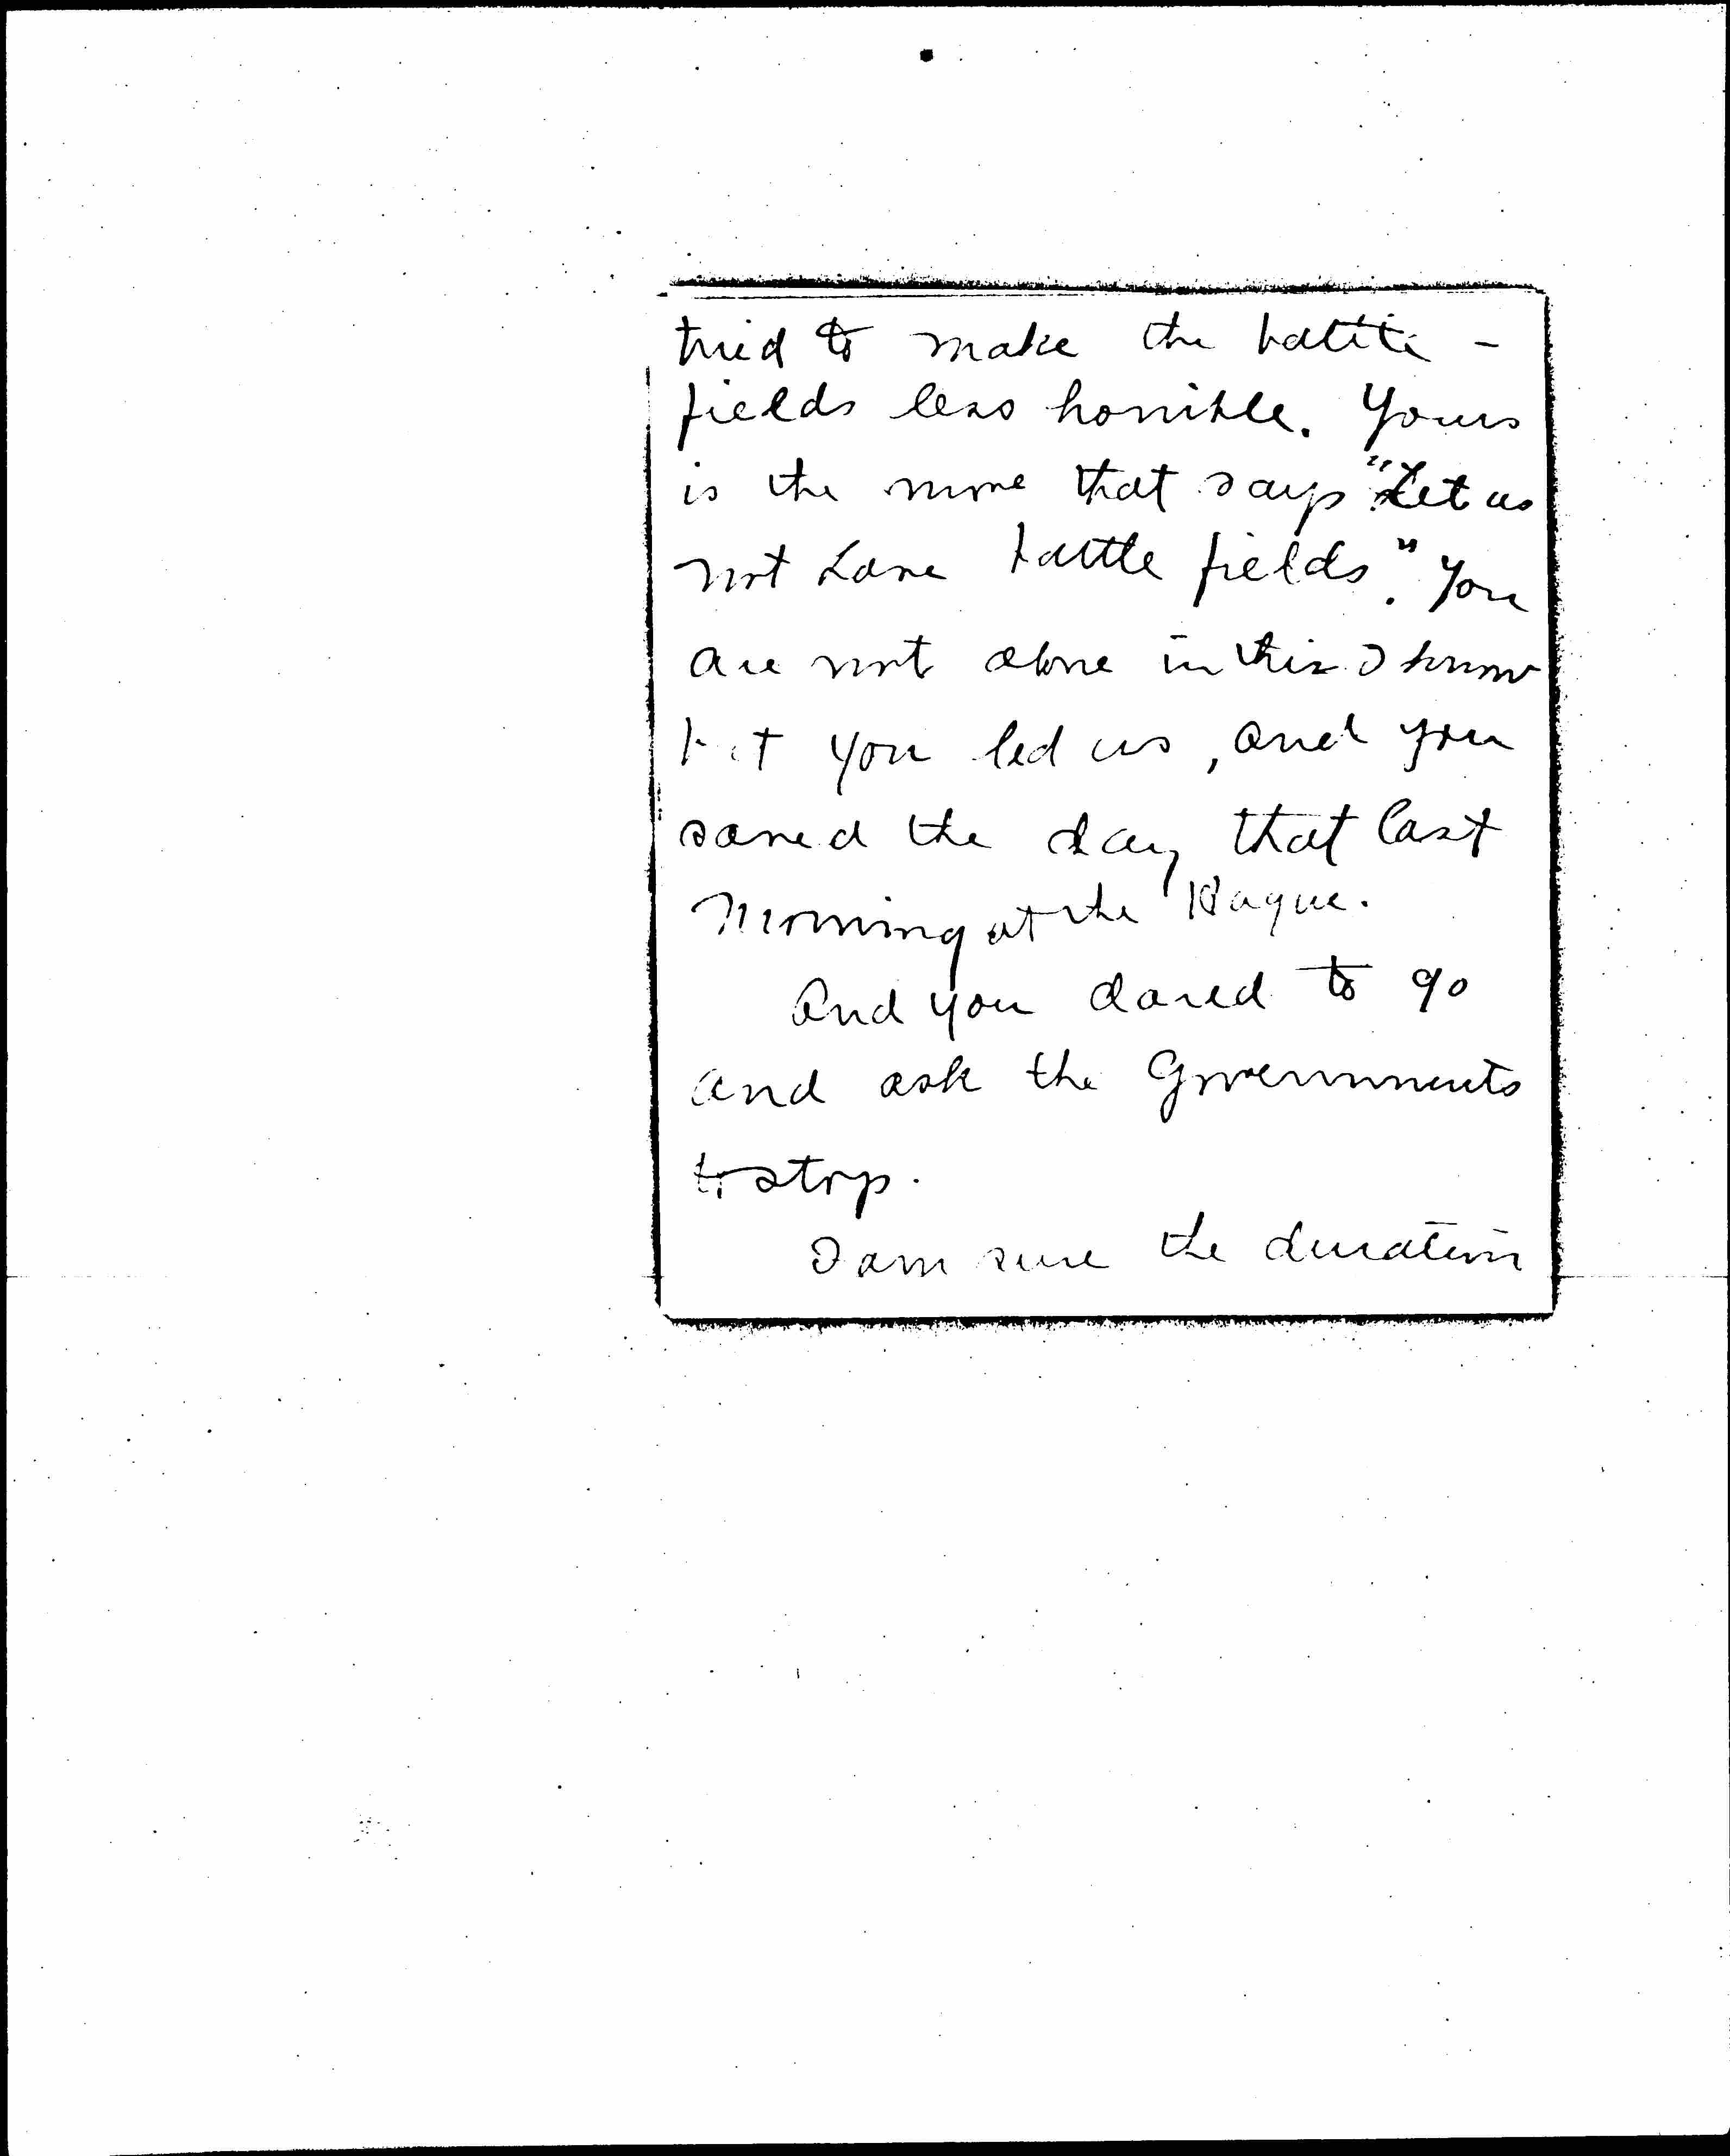 tried to make the battle-
fields less horrible. Yours
is the move that says "Let us
not have battle fields". You
are not alone in this I know
but you led us, and you
saved the day that last
morning at the Hague.
And you dared to go
and ask the Governments
to stop.
I am sure the duration